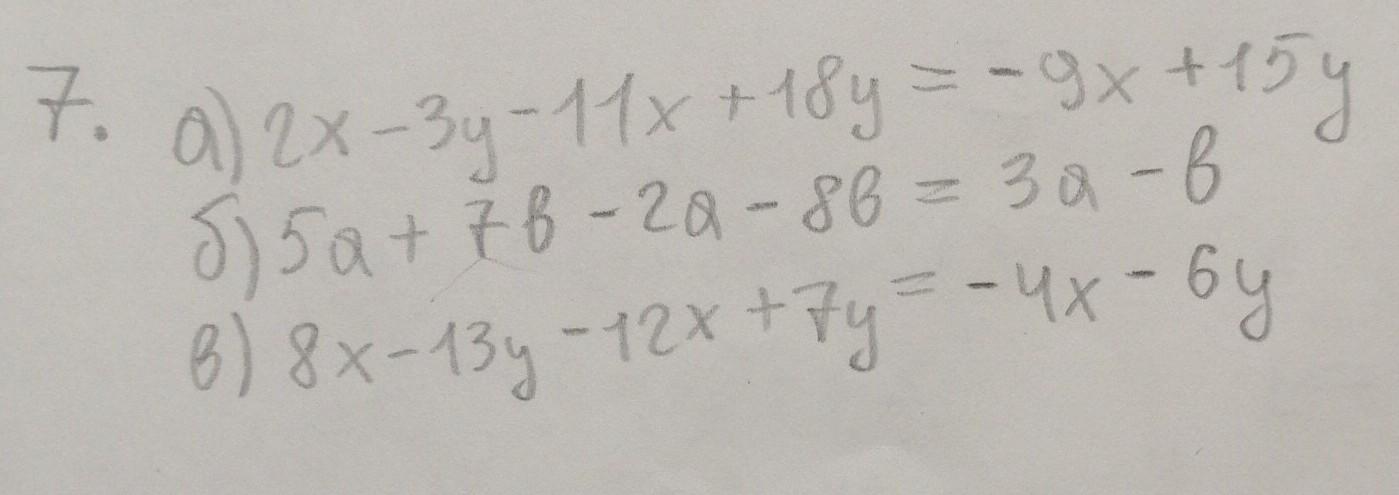 7. а) 2x - 3y - 11x + 18y = - 9x + 15y
б) 5a + 7b - 2a - 8b = 3a - b
в) 8x - 13y - 12x + 7y = - 4x - 6y